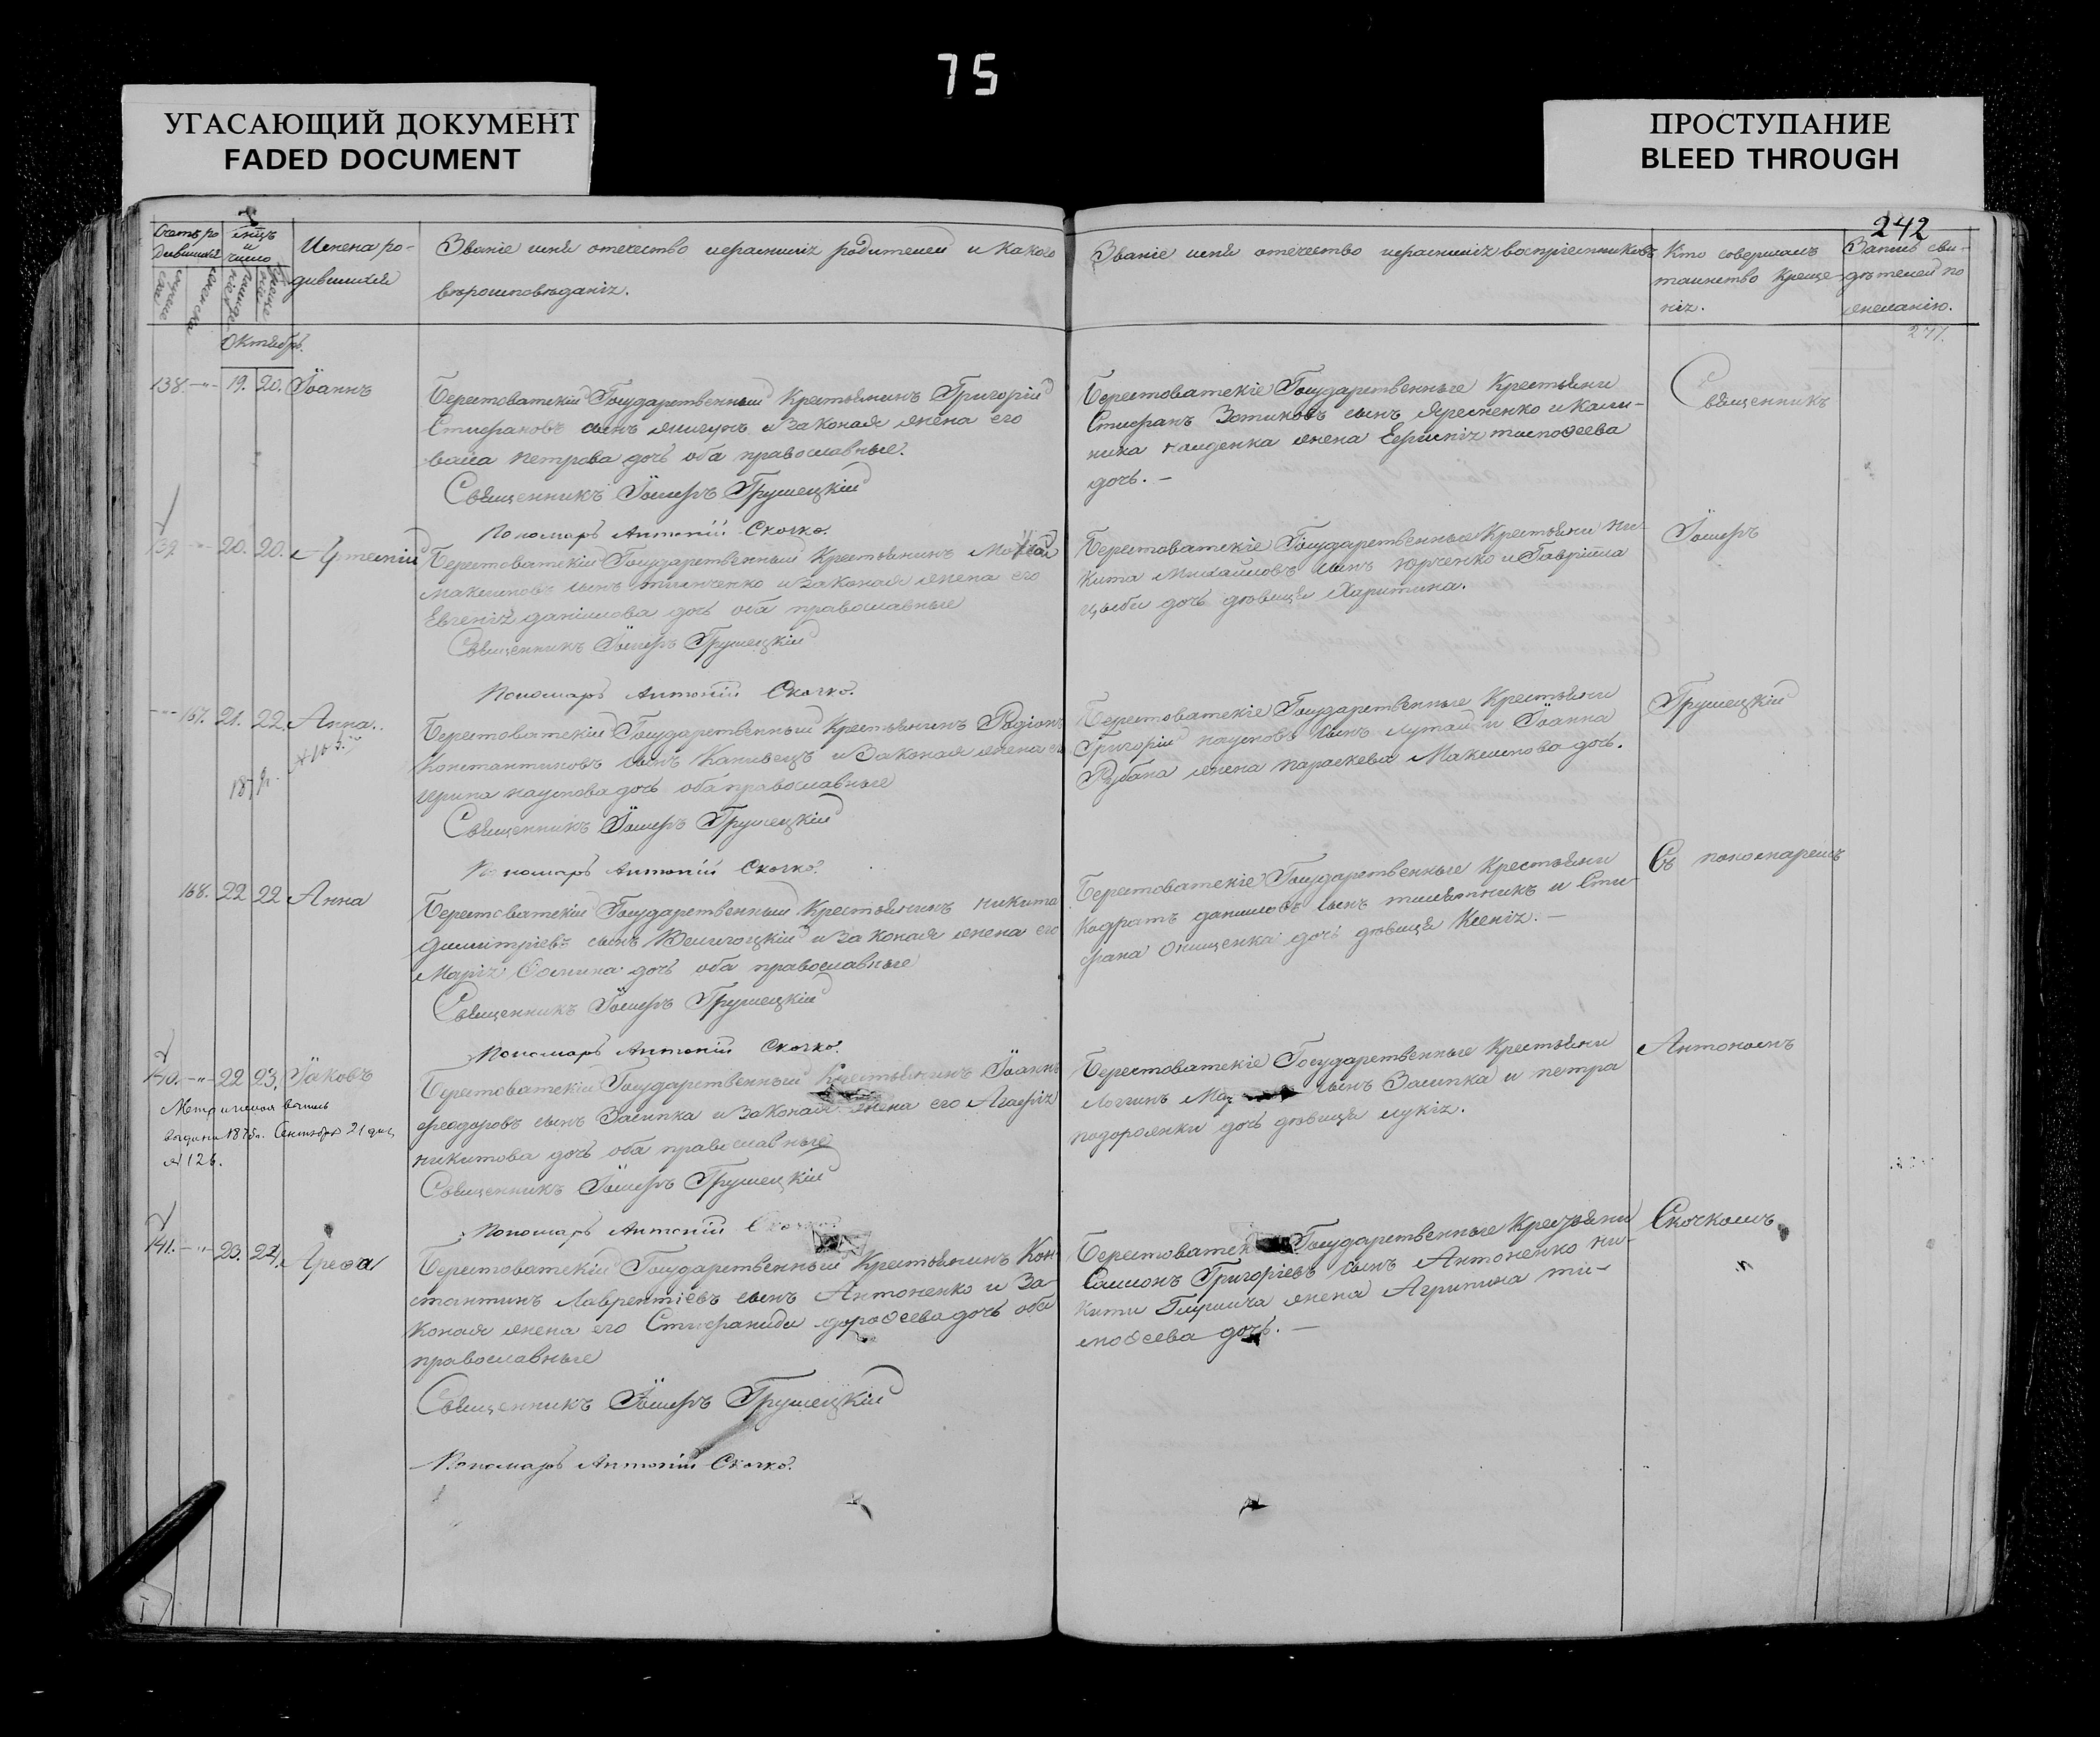 75
УГАСАЮЩИЙ ДОКУМЕНТ
FADED DOCUMENT
ПРОСТУПАНИЕ
BLEED THROUGH
242
Имена ро-
дившихся
Званіе имя отечество и фамилія родителей и какого
вѣроисповѣданія.
Званіе имя отечество и фамилія воспріемниковъ
Кто совершалъ
таинство креще-
нія.
Запись сви-
дѣтелей по
желанію.
Октябрь.
277.
138. 19. 20. Іоаннъ
Берестоватскій Государственный Крестьянинъ Григорій
Стефановъ сынъ и законая жена его
Петрова дочь оба православные.
Священникъ Іосифъ Грушецкій
Пономарь Антоній Скочко.
Берестоватскіе Государственные Крестьяни
Стефанъ Зотиковъ сынъ Яременко и Кали-
ника жена
дочь. —
Священникъ
139 20. 20. Артемій
Берестоватскій Государственный Крестьянинъ
Максимовъ сынъ и законая жена его
Евгенія Данілова дочь оба православные
Священникъ Іосифъ Грушецкій
Пономарь Антоній Скочко.
Берестоватскіе Государственные Крестьяни Ни-
кита Михайловъ сынъ Юрченко и Гавріила
Цыби дочь дѣвица Харитина.
Іосифъ
167. 21. 22. Анна.
Берестоватскій Государственный Крестьянинъ Родіонъ
Константиновъ сынъ Канивецъ и Законая жена его
Ирина Наумова дочь оба православные
Священникъ Іосифъ Грушецкій
Пономарь Антоній Скочко.
Берестоватскіе Государственные Крестьяни
Григорій Наумовъ сынъ Лутай и Іоанна
Рубана жена Параскева Максимова дочь.
Грушецкій
168. 22 22 Анна
Берестоватскій Государственный Крестьянинъ Никита
Димитріевъ сынъ и Законая жена его
Марія Фомина дочь оба православные
Священникъ Іосифъ Грушецкій
Пономарь Антоній Скочко.
Берестоватскіе Государственные Крестьяни
Кодратъ Даниловъ сынъ и Сте-
фана Онищенка дочь дѣвица Ксенія. —
Съ пономаремъ
140. 22 23. Іаковъ
Метрическая выпись
выдана 1875г. Сентября 21 дня
№ 126.
Берестоватскій Государственный Крестьянинъ Іоаннъ
Феодоровъ сынъ Засипка и Законая жена его Агафія
Никитова дочь оба православные
Священникъ Іосифъ Грушецкій
Пономарь Антоній Скочко.
Берестоватскіе Государственные Крестьяни
Логгинъ сынъ Засипка и Петра
дочь дѣвица Лукія.
Антоніемъ
141. 23. 24. Арефа
Берестоватскій Государственный Крестьянинъ Кон-
стантинъ Лаврентіевъ сынъ Антоненко и За-
коная жена его Стефанида Дорофеева дочь оба
православные
Священникъ Іосифъ Грушецкій
Пономарь Антоній Скочко.
Государственные Крестьяни
Самсонъ Григоріевъ сынъ Антоненко Ни-
кити жена Агрипина Ти-
мофеева дочь. —
Скочкомъ